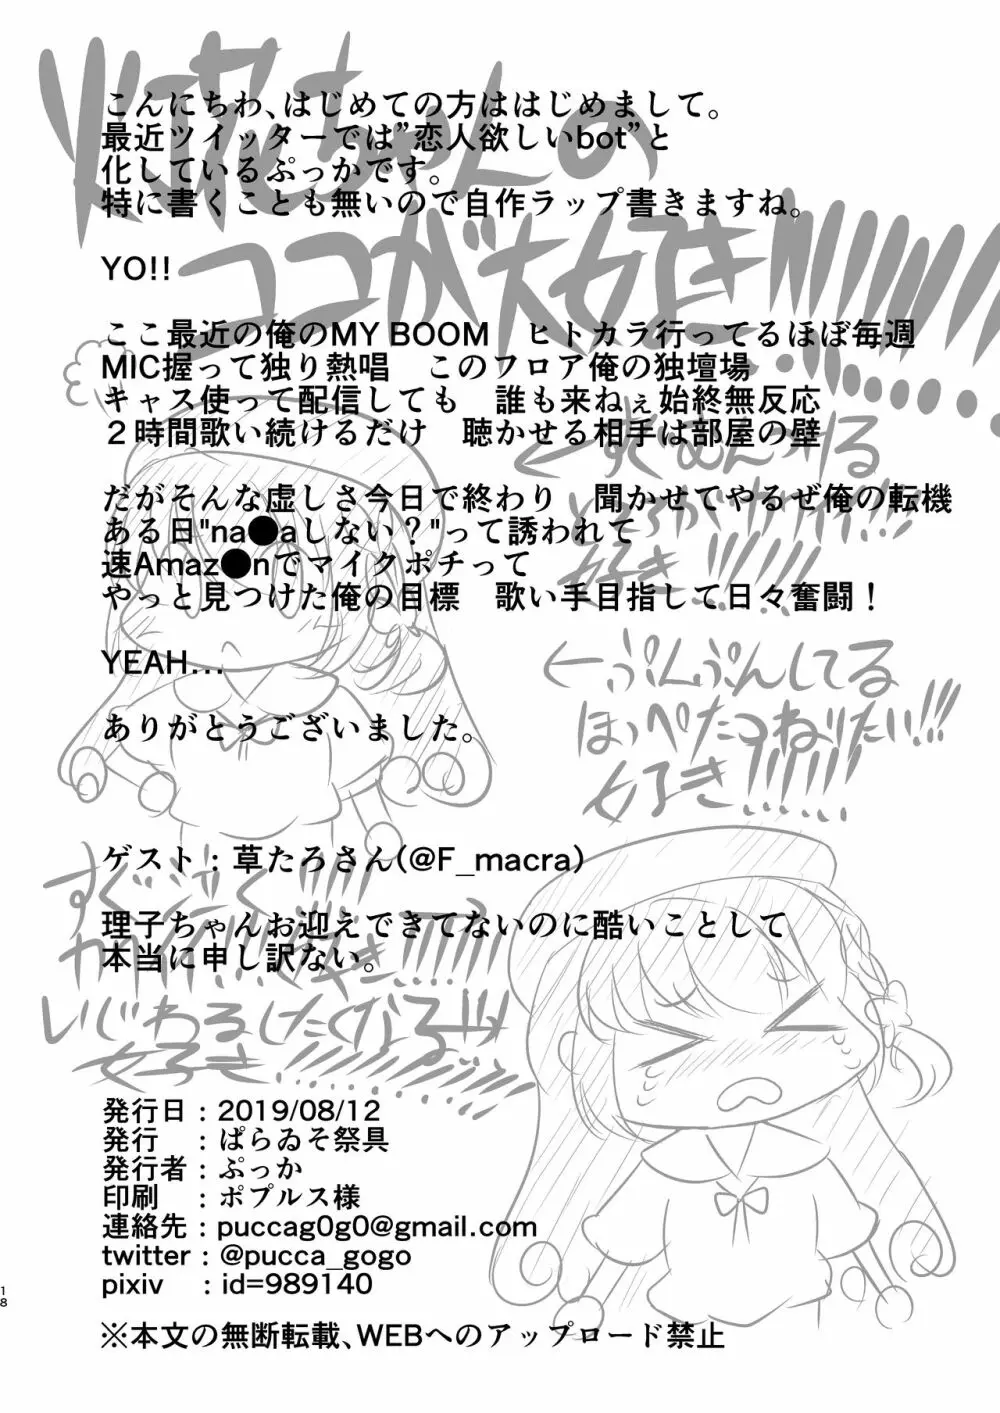 火花ちゃんの
ココが大好き!!!!!!!!!
こんにちわ、はじめての方ははじめまして。
最近ツイッターでは”恋人欲しいbot”と
化しているぷっかです。
特に書くことも無いので自作ラップ書きますね。
YO!!
ここ最近の俺のMY BOOM　ヒトカラ行ってるほぼ毎週
MIC握って独り熱唱　このフロア俺の独壇場
キャス使って配信しても　誰も来ねぇ始終無反応
２時間歌い続けるだけ　聴かせる相手は部屋の壁
だがそんな虚しさ今日で終わり　聞かせてやるぜ俺の転機
ある日"na●aしない？"って誘われて
速Amaz●nでマイクポチって
やっと見つけた俺の目標　歌い手目指して日々奮闘！
YEAH...
ありがとうございました。
←ぷんぷんしてる
ほっぺたつねりたい!!!
好き!!!!!!
ゲスト：草たろさん(@F_macra)
理子ちゃんお迎えできてないのに酷いことして
本当に申し訳ない。
いじわるしたくなるッッ
好き
発行日：2019/08/12
発行　：ぱらゐそ祭具
発行者：ぷっか
印刷　：ポプルス様
連絡先：puccag0g0@gmail.com
twitter：@pucca_gogo
pixiv　：id=989140
※本文の無断転載、WEBへのアップロード禁止
18